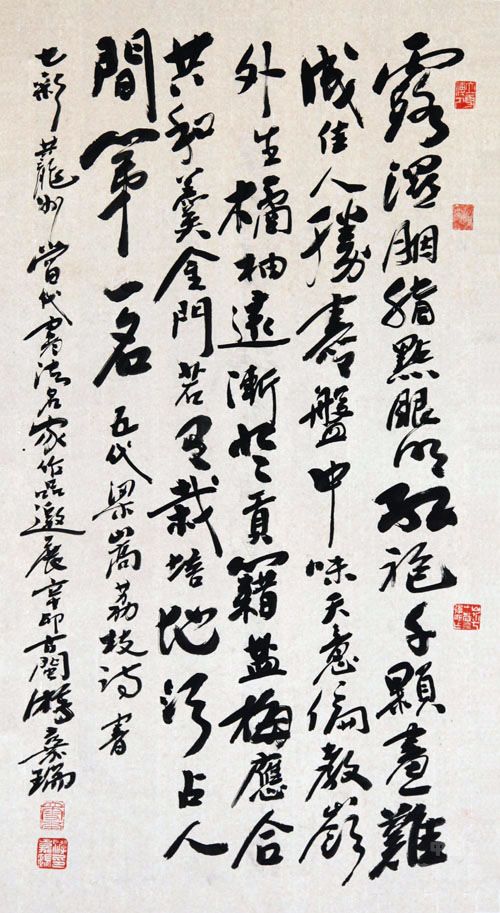 露濕胭脂點眼明紅袍千顆畫難
成佳人勝盤中味天意偏教嶺
外生橘柚遠漸登貢籍盐梅應合
共和羹金門若有栽培地須占人
間第一名 五代梁嵩荔枝詩書
七彩蘢州當代書法名家作品邀展辛卯古閩游嘉瑞